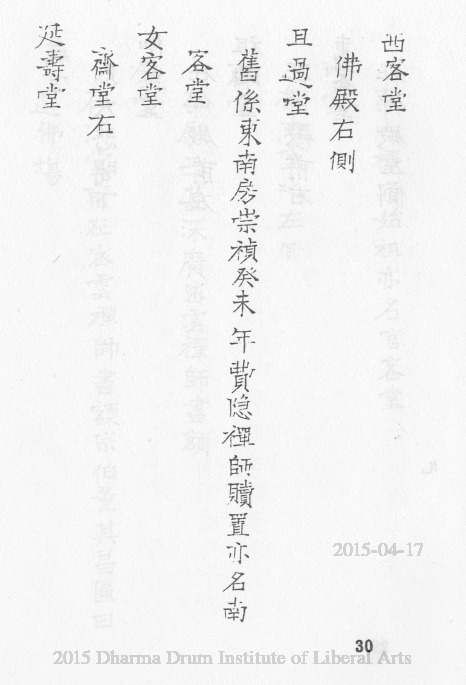 西客堂
佛殿右側
且過堂
舊係東南房崇禎癸未年費隐禪師贖置亦名南
客堂
女客堂
齋堂右
延壽堂
2015-04-17
30
2015 Dharma Drum Institute of Liberal Arts